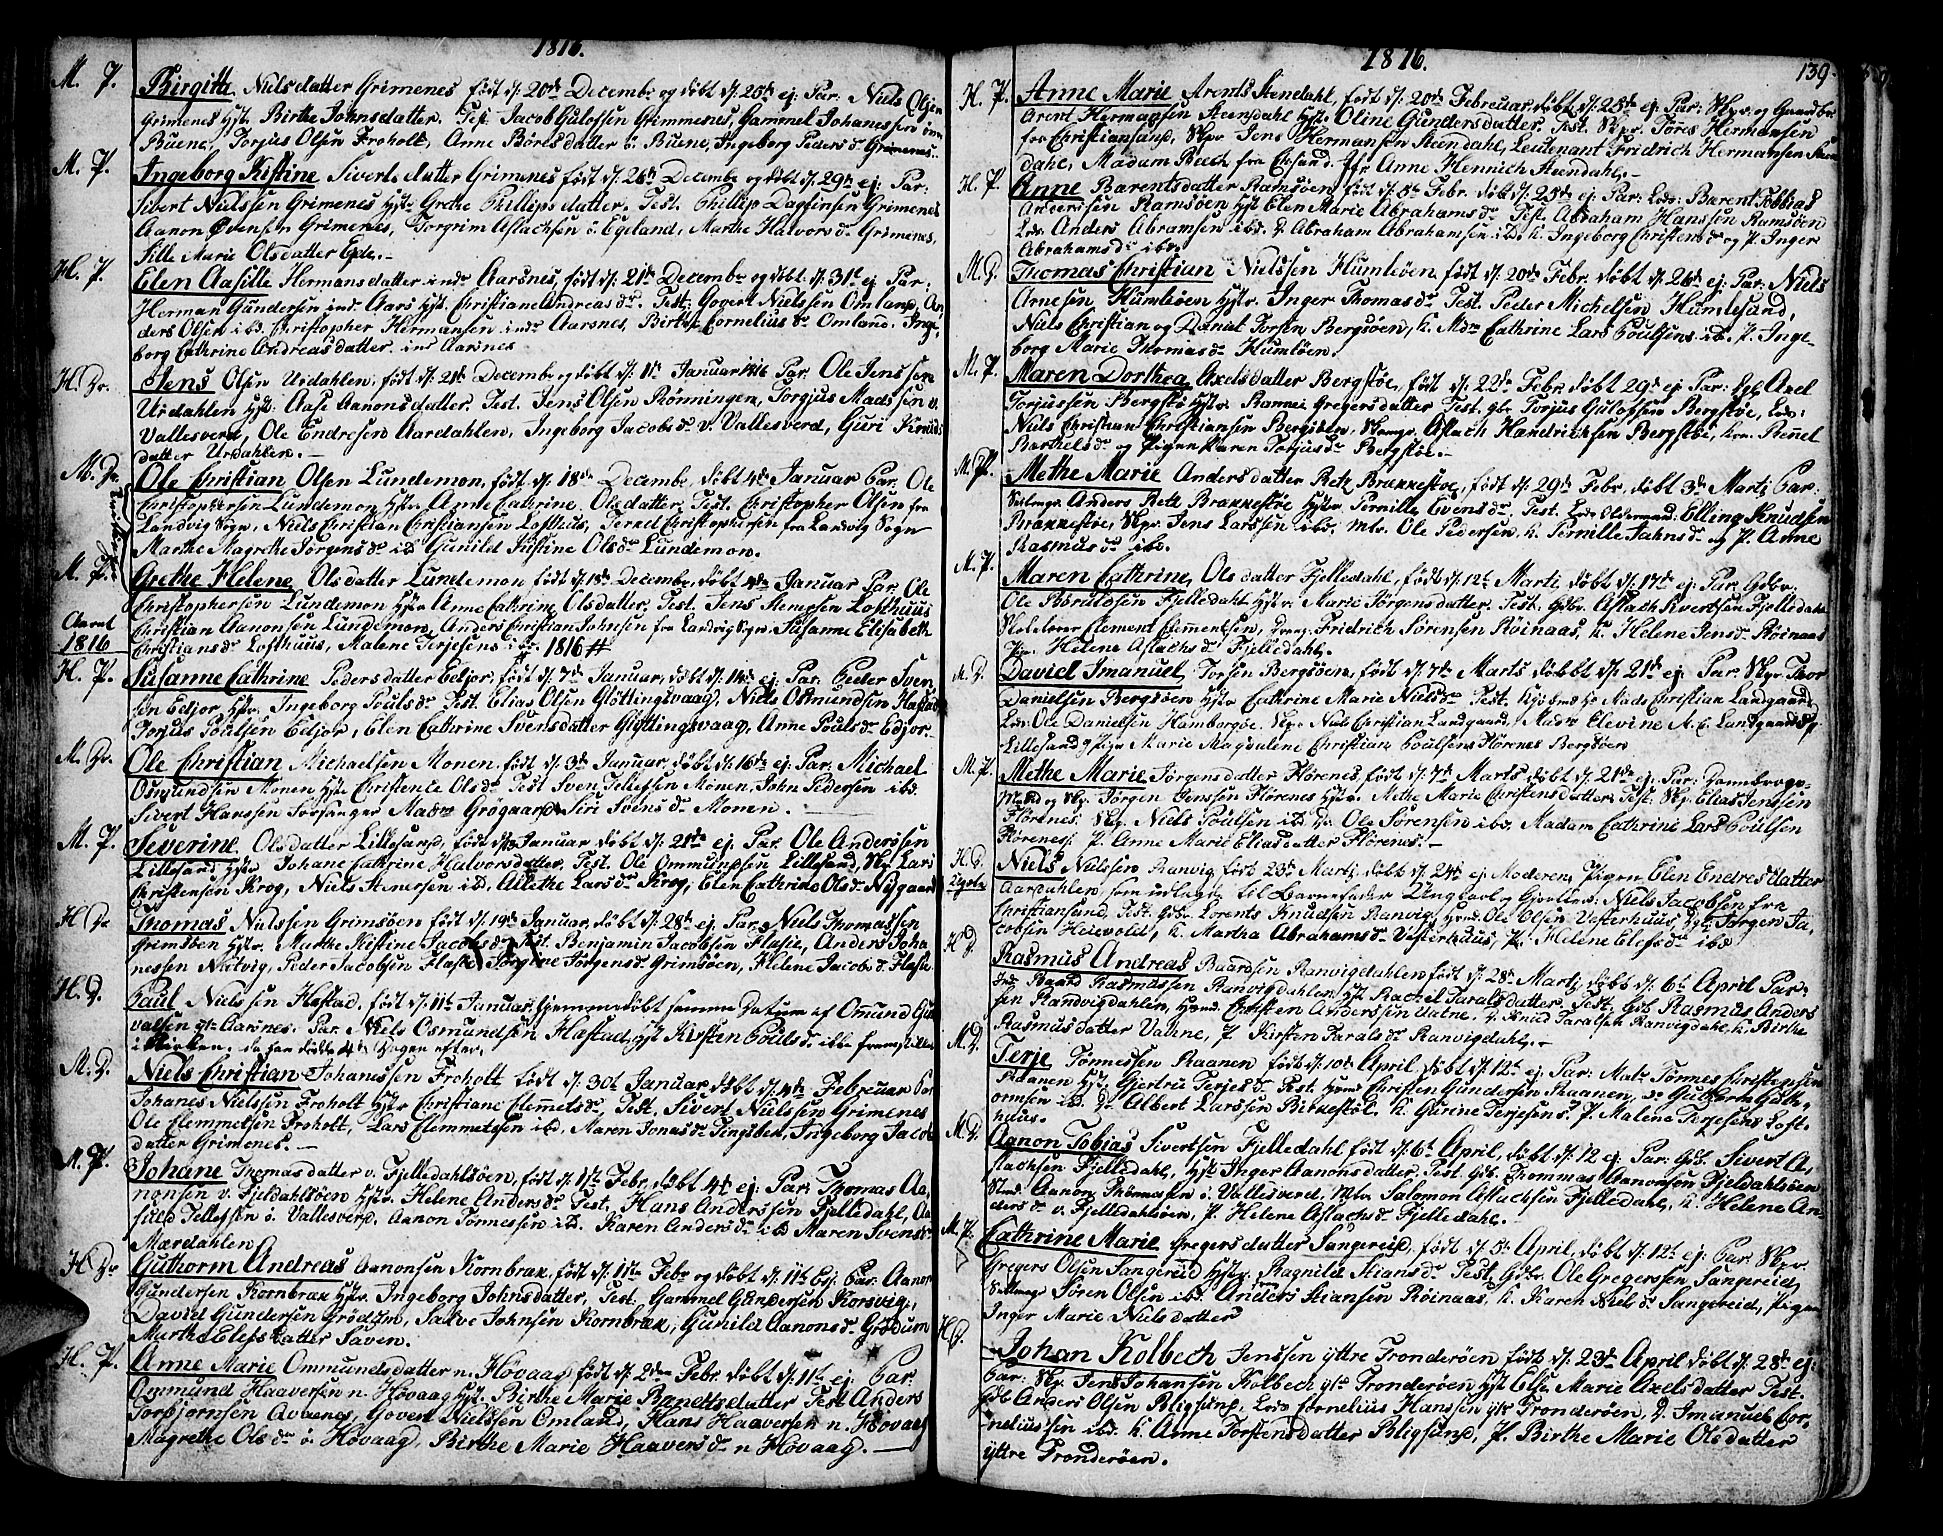 1816.
M. P. Birgitte Nielsdatter Grimenes født d: 20de Decembr og døbt d: 26de ej. Par. Niels Olsen
Grimenes hst: Birthe Johnsdatter. Test. Jacob Gulofsen Grimmenes, Gammel Johanessen
Buene, Torjus Olsen Froholt, Anne Børelsdatter ö Buene, Ingeborg Peders dr Grimenes.
M. P. Ingeborg Kistine Siverts datter Grimenes født d: 26de Decembr og døbt d: 29de ej Par:
Sivert Nielssen Grimenes hst: Grethe Phillips datter. Test. Phillip Dagfinsen Grimenes
Aanon Evensen Grimenes, Torgrim Aslachsen ö Egeland, Marthe Halvors dr Grimenes,
Sille Marie Olsdatter Eide.-
H. P. Elen Aasille Hermansdatter indr Aarsnes, født d: 21de Decembr og døbt d: 31te ej Par:
Herman Gundersen indr Aars hst Christiane Andreas dr. Test: Govert Nielssen Omland, An-
ders Olsen ibd. Christopher Hermansen indr Aarsnes, Birthe Cornelius dr Omland. Inge-
borg Cathrine Andreasdatter. ind Aarsnes
H Dr. Jens Olsen Urdahlen, født d: 21de Decembr og døbt d: 11te Januar 1816 Par. Ole Jenssen
Urdahlen hst: Aase Aanonsdatter. Test. Jens Olsen Rönningen, Torgjus Madssen v.
Vallesverd, Ole Endresen Aardahlen, Ingeborg Jacobs dr v. Vallesverd, Guri Knuds
datter Urdahlen.-
M. Dr. Ole Christian Olsen Lundemon, født d: 18de Decembr, døbt 4de Januar Par. Ole
Christophersen Lundemon hstr Anne Cathrine Olsdatter, Test. Christopher Olsen fra
Landvig Sogn, Niels Christian Christiansen Lofthuus, Terkel Christophersen fra Landvig Sogn
Marthe Magrethe Jörgens dr ibd Gunild Justine Ols dr Lundemon.
M. P. Grethe Helene Olsdatter Lundemon født d: 18de Decembr, døbt 4de Januar Par. Ole
Christophersen Lundemon hstr Anne Cathrine Olsdatter, Test. Jens Lofthuus
Christian Aanonsen Lundemon, Anders Christian Johnsen fra Landvig Sogn. Susanne Elisabeth
Aaret
1816
Christians dr Lofthuus, Malene Terjesens 1816 #
H. P. Susanne Cathrine Peders datter Eeljor, født d: 7de Januar, døbt d: 14de ej Par. Peder Sven-
sen Eeljor hstr. Ingeborg Pouls dr Test. Elias Olsen Glöttingsvaag, Niels Osmundsen Hæstad
Torjus Poulsen Eeljor, Elen Cathrine Svensdatter Glöttingsvaag, Anne Pouls dr Eeljor.
M. Dr. Ole Christian Michaelsen Monen, født d: 3de Januar, døbt d: 16de ej. Par. Michael
Osmundsen Monen hst Christence Ols dr Test Sven Tellefsen Monen, John Pedersen ibd.
Sivert Hanssen Torfanger Madm Grögaard, Siri Svens dr Monen.
M. P. Severine Olsdatter Lillesand, født Januar, døbt d: 21de ej. Par. Ole Anderssen
Lillesand, hstr Johane Cathrine Halvorsdatter. Test. Ole Ommundsen Lillesand, Skr. Lars
Christensen Krog, Niels Stenersen ibd, Alethe Lars dr Krog, Elen Cathrine Ols dr Nygaard
H Dr Thomas Nielssen Grimsöen født d: 19de Januar, døbt d: 28de ej. Par. Niels Thomassen
Grimsöen hstr. Marthe Kistine Jacobs dr Test. Benjamin Jacobsen Flasie, Anders Joha-
nessen Mitvig, Peder Jacobsen Flasie Jörgens dr Grimsöen, Helene Jacobs d. Flasie.
H. D. Paul Nielssen Hæstad. født d: 11te Januar. hjemmedöbt samme Datum af Omund Gu-
valsen ytr Aarsnes. Par. Niels Osmundsen Hæstad, hst Kirsten Pouls dr
i Kirken, da han döde Dagen efter.
M. D. Niels Christian Johanessen Froholt født d: 30t Januar døbt d: 4de Februar Par
Johanes Nielssen Froholt hstr Christiane Clemmets dr, Test, Sivert Nielssen Grimenes
Ole Clemmetsen Froholt, Lars Clemmetsen ibd, Maren Jonas dr Tingsbek, Ingeborg Jacobs
datter Grimenes.-
M. P. Johane Thomas datter v. Fjelledahlsöen, født d: 1ste Febr, døbt 4t ej: Par: Thomas Aa-
nonsen v. Fjeldahlsöen hstr. Helene Anders dr Test, Hans Anderssen Fjelledahl, Aa-
Tellefsen ö. Vallesverd. Aanon Tönnessen ibd. Karen Anders dr ibd Maren Svends dr
Mærdahlen
H Dr Guthorm Andreas Aanonsen Kornbræk, født d: 1ste Febr og døbt d: 11te Ej: Par: Aanon
Gundersen Kornbræk hstr. Ingeborg Johnsdatter, Test. Gammel Gundersen Korsvig,
David Gundersen Grödem, Salve Johnsen Kornbræk, Gunild Aanons dr Grödum
Marthe Elefs datter Saven.
H. P. Anne Marie Ommundsdatter n. Hövaag født d: 2den Febr. døbt d: 11te ej. Par.
Ommund Haaversen n. Hövaag hst: Birthe Marie Berntsdatter Test Anders
Torbjornsen Avænes, Govert Nielssen Omland, Hans Haaversen n. Hövaag
Magrethe Ols dr ö Hövaag, Birthe Marie Haavers dr n Hövaag.-
1816.
139.
H. P. Anne Marie Arents Steendahl, født d: 20de Februar, døbt d: 25de ej Par: Skpr. og Gaardbr
Arent Hermansen Steensdahl hstr Oline Gundersdatter. Test. Skpr. Tönnes Hermansen
fra Christiansand, Skpr Jens Hermansen Steendahl, Leutenant Fridrich Hermansen Steen
dahl, Madam Bech fra Ekersund. Jfr. Anne Hennich Steendahl.-
H. P. Anne Barentsdatter Ramsöen født d: 8de Febr. døbt d: 25de ej Par: Lods: Barent Tobbias
Andersen Ramsöen hst Elen Marie Abrahams dr Test, Abraham Hanssen Ramsöen
Lods. Anders Abramsen ibd. D Abraham Abrahamsen ibd. K. Ingeborg Christens dr og P. Inger
Abrahams dr ibd.
M. D. Thomas Christian Nielssen Humlöen, født d: 20de Febr. døbt d: 26de ej, Par, Niels
Arnesen Humlöen hstr. Inger Thomas dr Test. Peder Michelsen Humlesand,
Niels Christian og Daniel Torsen Bergsöen, K. Mdm Cathrine Lars Poulsens ibd. P. Inge-
borg Marie Thomas dr Humlöen.
M. P. Maren Dorthea Axelsdatter Bergstöe, født d: 22de Febr. døbt 29de ej Par: Axel
Torjussen Bergstö hstr. Rannei Gregers datter Test. gbr. Torjus Gulofsen Bergstöe, Lods:
Niels Christian Christiansen Bergstöen, Aslach Handrichsen Bergstöe, Kon. Rennel
Barthels dr og Pigen Karen Torjus dr Bergstöe.-
M. P. Methe Marie Anders datter Beth Brækkestöe, født d: 29de Febr. døbt 3de Martj Par:
Anders Beth Brækkestöe hstr. Pernille Evens dr, Test. Lods Elling Knudsen
Brækkestöe, Skpr. Jens Larssen ibd. Mtr. Ole Pedersen, K. Pernille Jahns dr og P. Anne
Rasmus dr ibd.
M. P. Maren Cathrine, Ols datter Fjelledahl, født d: 12te Martj døbt d: 17de ej Par. Gdbr.
Ole Börulfsen Fjelledahl hstr. Marie Jörgensdatter. Test. Gdbr. Aslach Sivertsen Fjelledahl
Skolelærer Clement Clementsen, Fridrich Sörensen Röinaas, K. Helene Jens dr Röinaas
Pige. Helene Aslachs dr Fjelledahl.
M. D. David Imanuel Torsen Bergsöen, født d: 7de Marts døbt d: 21de ej Par Skpr. Thor
Danielsen Bergsöen hstr Cathrine Marie Niels dr Test. Mads Christian Landgaard
Lods: Ole Danielsen Hamborgöe, Skpr Niels Christian Landgaard, Madm Elevine M. C. Landgaards
Lillesand, og Pigen Marie Magdelene Christian Poulsens Hörenes Bergsöen
M. P. Methe Marie Jörgens datter Hörenes, født d: 7de Marts døbt d: 21de ej Par: Dannebrogs-
Mand og Skpr. Jörgen Jenssen Hörenes hstr. Methe Marie Christensdatter Test. Skpr. Elias Jenssen
Hörenes. Skpr. Niels Poulsen ibd. Do Ole Sörensen ibd. Madam Cathrine Lars Poulsen
Hörenes: P. Anne Marie Elias datter Hörenes.-
H. D. Niels Nielssen Ranvig født 23de Martj døbt d: 24de ej Moderen Pigen Elen Endres datter
Ugte
Aardahlen, som udlagde til Barnefader Ungkarl og Niels Jacobsen fra
Christiansand, Test. Gdbr. Lorents Knudsen Ranvig, Ole Olsen Vesterhuus, Jörgen Ja-
cobsen Heievold, K. Martha Abrahams dr Vesterhuus, P. Helene Elefs dr ibd.
H D. Rasmus Andreas Baardsen Ranvigdahlen født d: 28de Martj døbt d: 6te April Par
Baard Rasmussen Ranvigdahlen, hst Rachel Taralsdatter, Test. Gdb. Rasmus Anders
sen Ranvigdahlen, Christen Anderssen Vatne. D Knud Taralsen Ranvigdahl, K. Birthe
Rasmusdatter Vatne, P Kirsten Tarals dr Ranvigdahl.-
M. D. Terje Tönnessen Raanen født d: 10de April døbt d: 12te ej Par: Mat: Tönnes Christensen
Raanen hst: Gjertrud Terjes dr Test. Christen Gundersen Raanen, Do Guttorm Guth-
ormsen ibd. Do Albert Larssen Birkestöl. K. Gurine Terjesens P. Malene Terjesens Loft-
huus.
M D. Aanon Tobias Sivertsen Fjelledahl født d: 6te April, døbt d: 12 ej Par: Gdb. Sivert A-
slachsen Fjelledahl, hst Inger Aanonsdatter, Test. Gdb. Thommas Aanonsen Fjeldahlsöen
Aanon Thommessen ö. Vallesverd, Salomon Aslachsen Fjelledahl, K. Helene An-
ders dr v. Fjelledahlsöen, P. Helene Aslachs dr Fjelledahl.
M. P. Cathrine Marie Gregers datter Sangereid, født d: 5te April, døbt d: 12te ej Par. Skpr.
Gregers Olsen Sangereid hstr. Ragnild Stians dr Test: Gdbr. Ole Gregerssen Sangereid,
Sören Olsen ibd. Anders Stiansen Röinaas, K. Karen Niels dr Sangereid, Pigen
Inger Marie Nielsdatter
H D. Johan Kolbech Jenssen yttre Tronderöen født d: 23de April døbt d: 28de ej
Par: Skpr. Jens Johansen Kolbech ytr Tronderöen hst Else Marie Axelsdatter Test.
Gdb Anders Olsen Bligsund, Lods Cornelius Hanssen ytr Tronderöen, D. Imanuel Cor-
neliussen ibd. K. Anne Torstensdatter Bligsund, P. Birthe Marie Olsdatter
yttre Tronderöen.